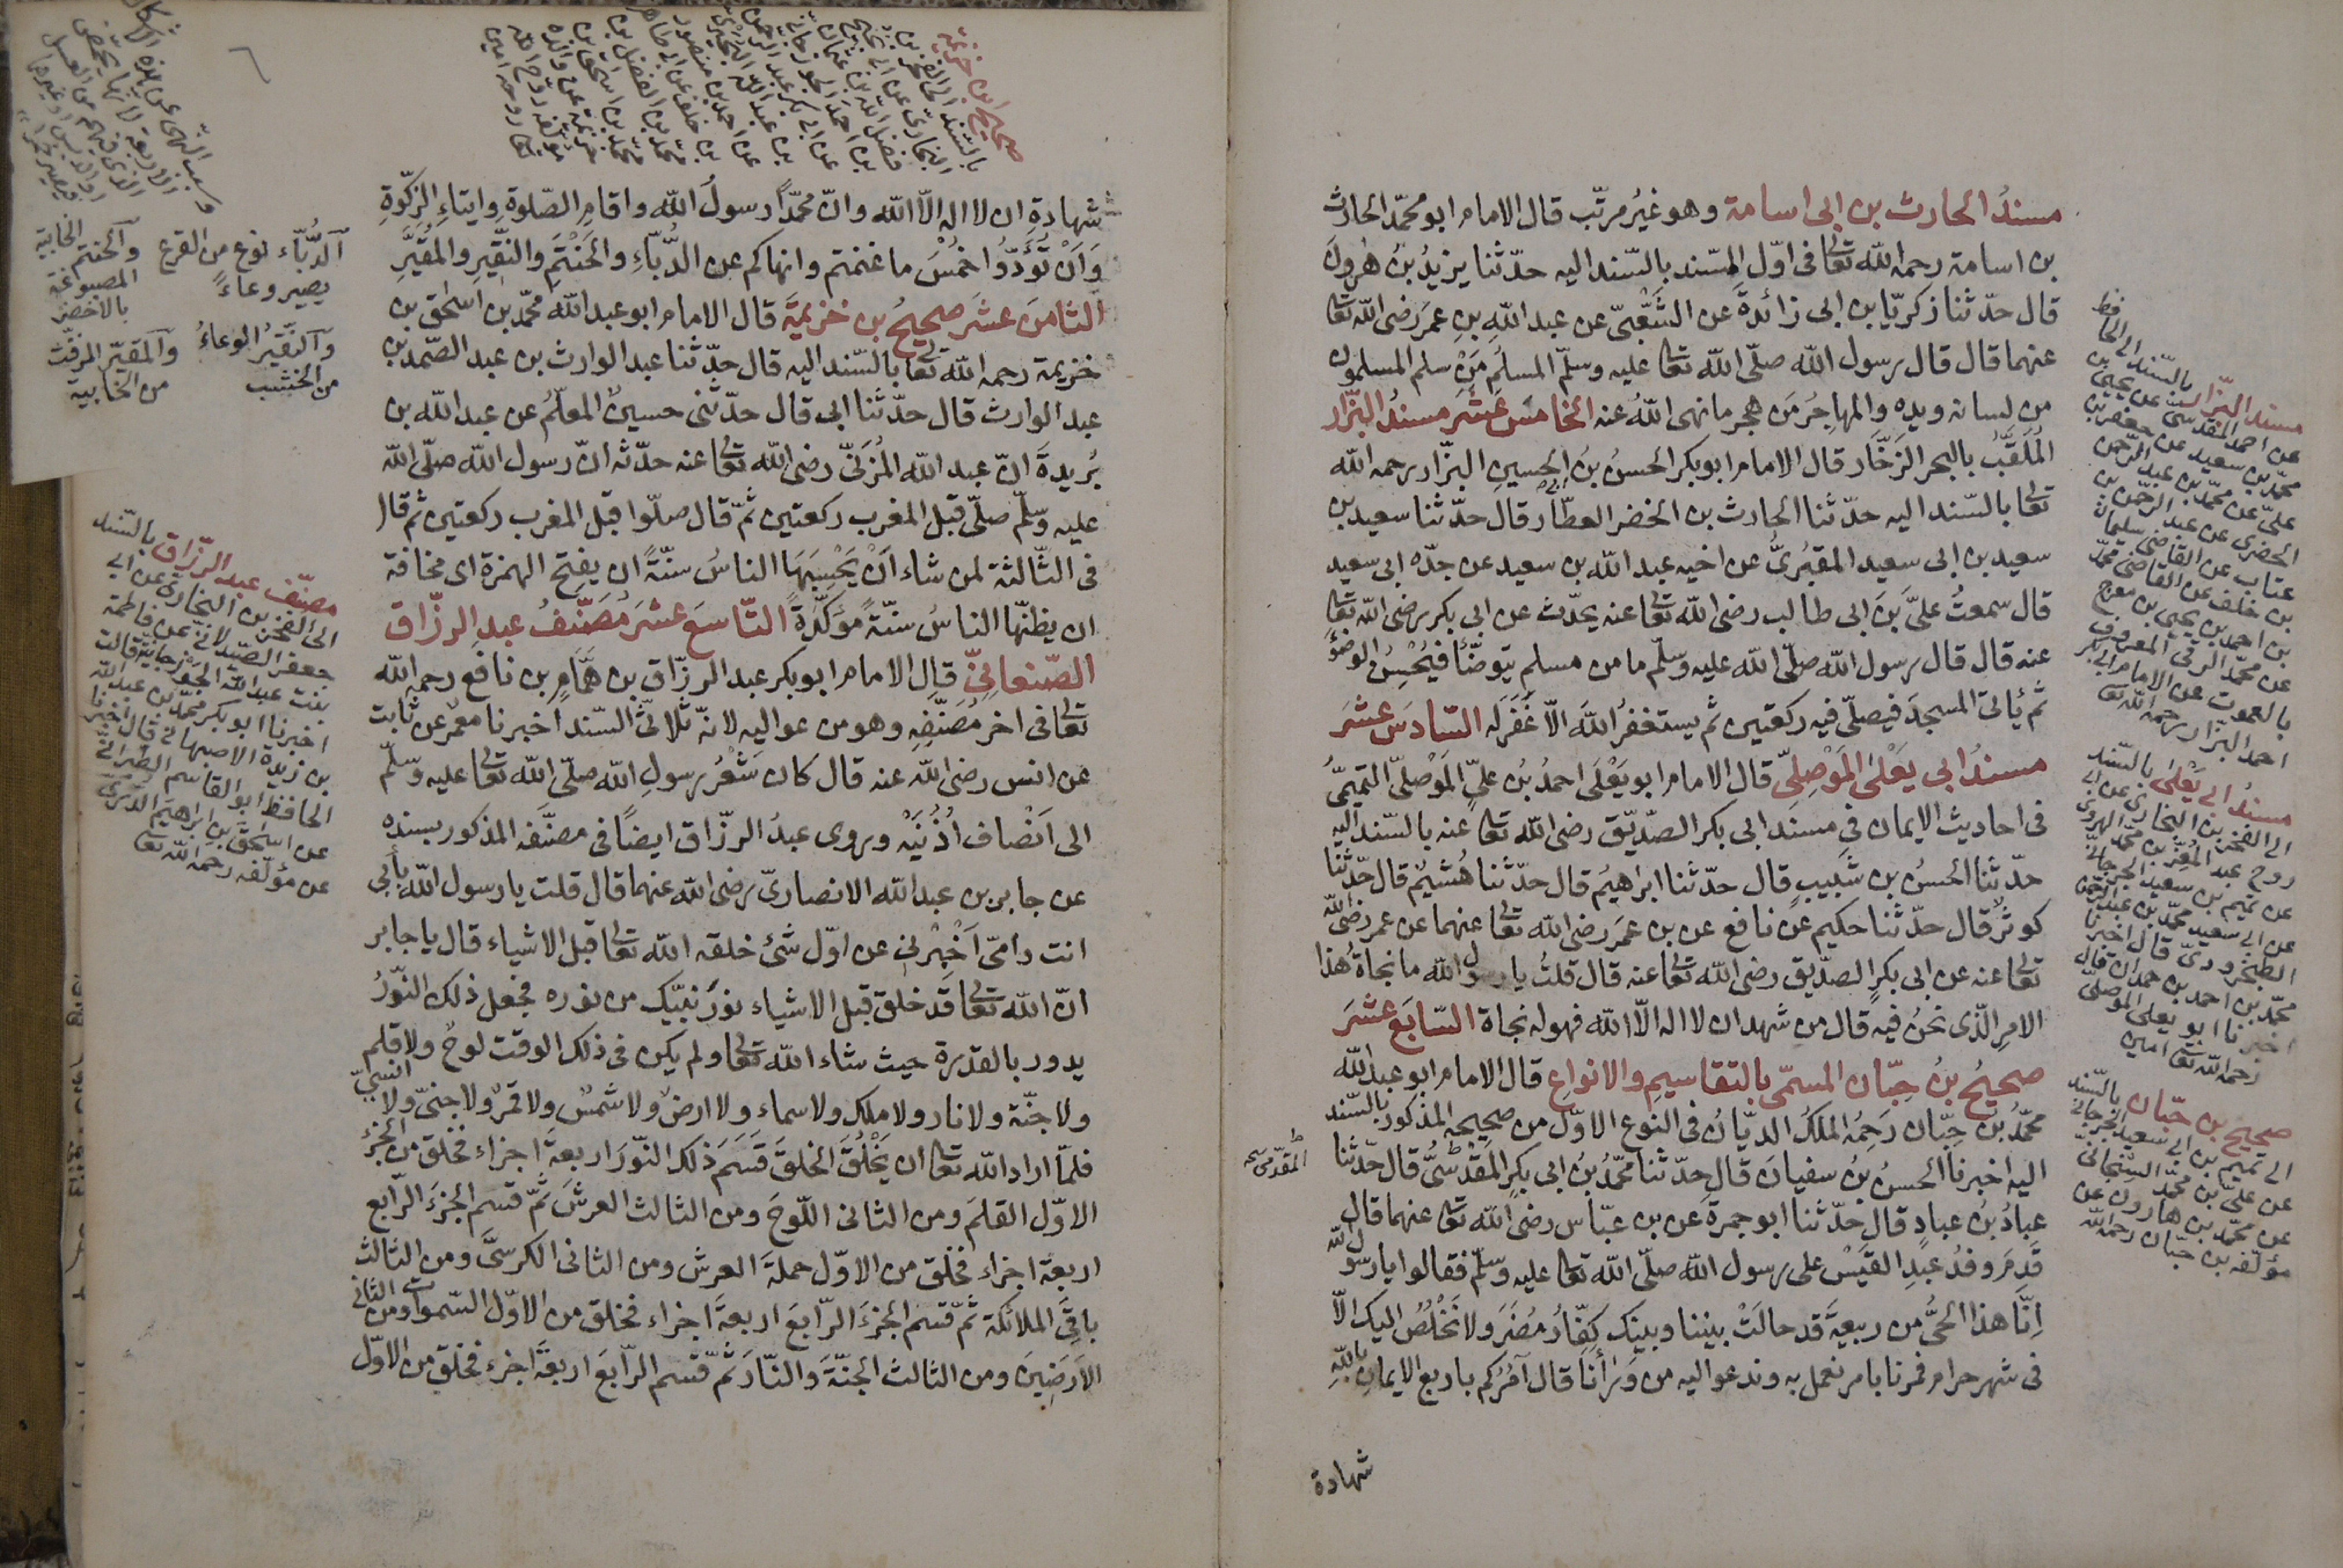 مسندُ الحارث بن ابى اسامة وهو غيرُ مرتّب قال الامام ابو محمّد الحارث
بن اسامة رحمه الله تعالى فى اوّل المسند بالسّند اليه حدّثنا يزيدُ بنُ هٰرونَ
قال حدّثنا زكريّا بن ابى زائدةَ عن الشَّعْبىّ عن عبد اللهِ بنِ عمرَ رضى الله تعالى
عنهما قال قال رسول الله صلّى الله تعالى عليه وسلّم المسلمُ مَنْ سلم المسلمون
من لسانه ويده والمهاجرُ مَن هجر ما نهى اللهُ عنه الخامسَ عشَرَ مسندُ البزّار
المُلَقَّبُ بالبحر الزَخَّار قال الامام ابو بكر الحسنُ بنُ الحسينِ البزّار رحمه الله
تعالى بالسّند اليه حدّثنا الحارث بن الخضر العطّار قال حدّثنا سعيد بن
سعيد بن ابى سعيد المقبُرىُّ عن اخيه عبد الله بن سعيد عن جدّه ابى سعيد
قال سمعتُ علىَّ بنَ ابى طالب رضى الله تعالى عنه يحدّث عن ابى بكر رضى الله تعالى
عنه قال قال رسول الله صلّى الله عليه وسلّم ما من مسلم يتوضّأ فيُحْسِنُ الوضؤَ
ثم يأتى المسجدَ فيصلّى فيه ركعتين ثم يستغفرُ اللهَ الّا غَفَرَ له السّادسَ عشَرَ
مسندُ ابى يَعْلىٰ المَوْصِلىِّ قال الامام ابو يَعْلَى احمدُ بنُ علىٍّ المَوْصلىّ التميمىُّ
فى احاديث الايمان فى مسندِ ابى بكر الصدّيق رضى الله تعالى عنه بالسّند اليه
حدّثنا الحسنُ بن شَبيبٍ قال حدّثنا ابراهيمُ قال حدّثنا هُشَيمٌ قال حدّثنا
كوثرٌ قال حدّثنا حكيم عن نافع عن بن عمَرَ رضى الله تعالى عنهما عن عمر رضى الله
تعالى عنه عن ابى بكرٍ الصدّيق رضى الله تعالى عنه قال قلتُ يا رسول الله ما نجاةُ هذا
الامرِ الّذى نحنُ فيه قال من شهد ان لا اله الّا الله فهو له نجاة السّابعَ عشَرَ
صحيحُ بنُ حِبّان المسمّى بالتقاسيمِ والانواع قال الامام ابو عبد الله
محمّدُ بنُ حِبّان رَحِمَهُ الملكُ الديّانُ فى النوع الاوّل من صحيحه المذكور بالسّند
اليه اخبرنا الحسنُ بنُ سفيانَ قال حدّثنا محمّدُ بنُ ابى بكرٍ المقدسىُّ قال حدّثنا
عبادُ بنُ عبادٍ قال حدّثنا ابو جمرةَ عن بن عبّاس رضى الله تعالى عنهما قال
قَدِمَ وفدُ عبدِ القَيْسْ على رسول الله صلّى الله تعالى عليه وسلّم فقالوا يا رسول الله
اِنّا هذا الحىُّ من ربيعةَ قد حالَتْ بيننا وبينك كفّارُ مُضَرَ ولا نَخْلُصُ اليك الّا
فى شهر حرام فمرنا بامر نعمل به وندعو اليه من وَرَأنا قال آمُرُكم باربع الايمانِ باللهِ
شهادة
مسند البزّار بالسّند الى الحافظ
عن احمد المقدسى عن يحيى بن
محمّد بن سعيد عن جعفر بن
علىّ عن محمّد بن عبد الرّحمن
الحضرى عن عبد الرّحمن بن
عتاب عن القاضى سليمان
بن خلف عن القاضى محمّد
بن احمد بن يحيى بن مفرج
عن محمّد الرقى المعروف
بالصموت عن الامام ابى بكر
احمد البزار رحمه الله تعالى
مسندُ ابى يَعْلىٰ بالسّند
الى الفخر بن البخارى عن ابى
روح عبد المُعِزّ بن محمّد الهروى
عن تميم بن سعيد الجرجانى
عن ابى سعيد محمّد بن عبد الرّحمن
محمّد بن احمد بن حمدان قال
اخبرنا ابو يعلى الموصلىّ
رحمه الله تعالى امين
صحيح بن حبّان بالسّند
الى تميم بن ابى سعيد الجرجانى
عن علىّ بن محمّد
عن محمّد بن هارون عن
مؤلّفه بن حبّان رحمه الله
صحيح ابن خزيمة
بالسّند الى الفخر بن
شهادةِ ان لا اله الّا الله وانّ محمّداً رسولُ الله واقامِ الصّلوةِ وايتاءِ الزّكوةِ
وَاَنْ تُؤَدّوُا خُمْسَ ما غنمتم وانهاكم عن الدُّبّآءِ والحَنْتَمِ والنَّقيرِ والمُقَيَّرِ
الثامنَ عشَرَ صحيحُ بن خزيمةَ قال الامام ابو عبد الله محمّد بن اسحٰق بن
خزيمة رحمه الله تعالى بالسّند اليه قال حدّثنا عبد الوارث بن عبد الصّمد بن
عبد الوارث قال حدّثنا ابى قال حدّثنى حسينٌ المعلّمُ عن عبد الله بن
بُريدةَ انّ عبد الله المُزَنىّ رضى الله تعالى عنه حدّثه انّ رسول الله صلّى الله
عليه وسلّم صلّى قبل المغرب ركعتين ثمّ قال صلّوا قبل المغرب ركعتين ثم قال
فى الثّالثة لمن شاء اَنْ يَحْسِبَهَا الناسُ سنّةً ان بفتح الهمزة اى مخافة
ان يظنّها الناسُ سنّةً مؤكّدةً التّاسعَ عشَرَ مُصَنَّفُ عبدِ الرزّاق
الصّنعانىِّ قال الامام ابو بكر عبد الرزّاق بن هَمَّامِ بن نافع رحمه الله
تعالى فى اخر مُصَنَّفِهِ وهو من عواليه لانّه ثلاثىُّ السّند اخبرنا معمرٌ عن ثابت
عن انس رضى الله عنه قال كان شَعْرُ رسولِ الله صلّى الله تعالى عليه وسلّم
الى اَنْصاف اُذُنَيْه وروى عبدُ الرزّاق ايضاً فى مصنّفه المذكور بسنده
عن جابر بن عبد الله الانصارىّ رضى الله عنهما قال قلت يا رسول الله بأبى
انت وامّى اَخْبِرْنى عن اوّل شئ خلقه الله تعالى قبل الاشياء قال يا جابر
انّ الله تعالى قد خلق قبل الاشياء نورَ نبيّك من نوره فجعل ذلك النّورُ
يدور بالقدرة حيث شاء الله تعالى ولم يكن فى ذلك الوقت لوحٌ ولا قلم
ولا جنّة ولا نار ولا ملك ولا سماء ولا ارضٌ ولا شمسٌ ولا قمرٌ ولا جنّىّ ولا انسىّ
فلمّا اراد الله تعالى ان يَخْلُقَ الخلقَ قَسَمَ ذلك النّورَ اربعةَ اجزاء فخلق من الجزء
الاوّل القلمَ ومن الثانى اللّوحَ ومن الثالث العرشَ ثمّ قسم الجزءَ الرّابع
اربعة اجزاء فخلق من الاوّل حملةَ العرش ومن الثانى الكرسىَّ ومن الثالث
باقِىَ الملائكة ثمّ قسم الجزءَ الرّابعَ اربعةَ اجزاء فخلق من الاوّل السّموات ومن الثانى
الاَرَضِينَ ومن الثالث الجنّةَ والنّارَ ثمّ قسم الرّابعَ اربعةَ اجزء فخلق من الاوّل
آلدُّبّآء نوع من القرع
يصير وعاءً
وآلنّقيرُ الوعاءُ
من الخشب
وآلحنتم الخابية
المصبوغة
بالاخضر
وآلمقيّر المزفّت
من الخابية
مصنّف عبد الرزّاق بالسّند
الى الفخر بن البخارى عن ابى
جعفر الصّيدلانى عن فاطمة
بنت عبد الله الجَوْزجانية قالت
اخبرنا ابو بكر محمّد بن عبد الله
بن زيدة الاصبهانى قال اخبرنا
الحافظ ابو القاسم الطبرانى
عن اسحٰق بن ابراهيم الدّبَرىّ
عن مؤلّفه رحمه الله تعالى